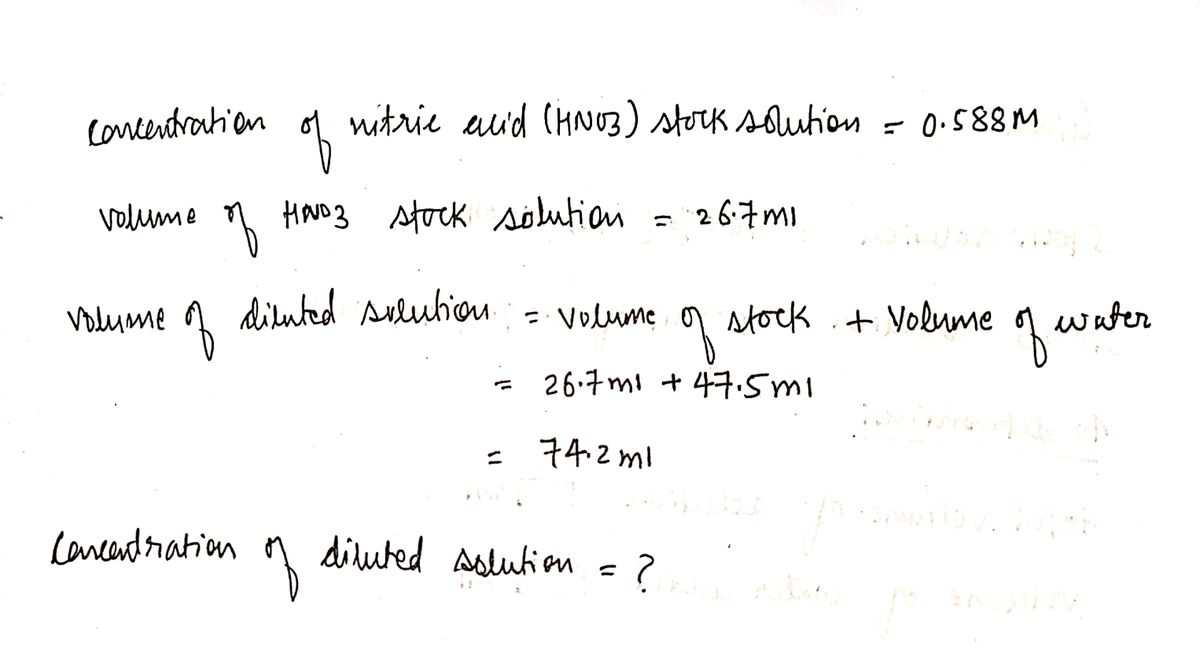 concentration of nitric acid (HNO3) stock solution = 0.588M
volume of HNO3 stock solution = 26.7ml
volume of diluted solution = volume of stock + Volume of water
= 26.7ml + 47.5ml
= 74.2ml
Concentration of diluted solution = ?